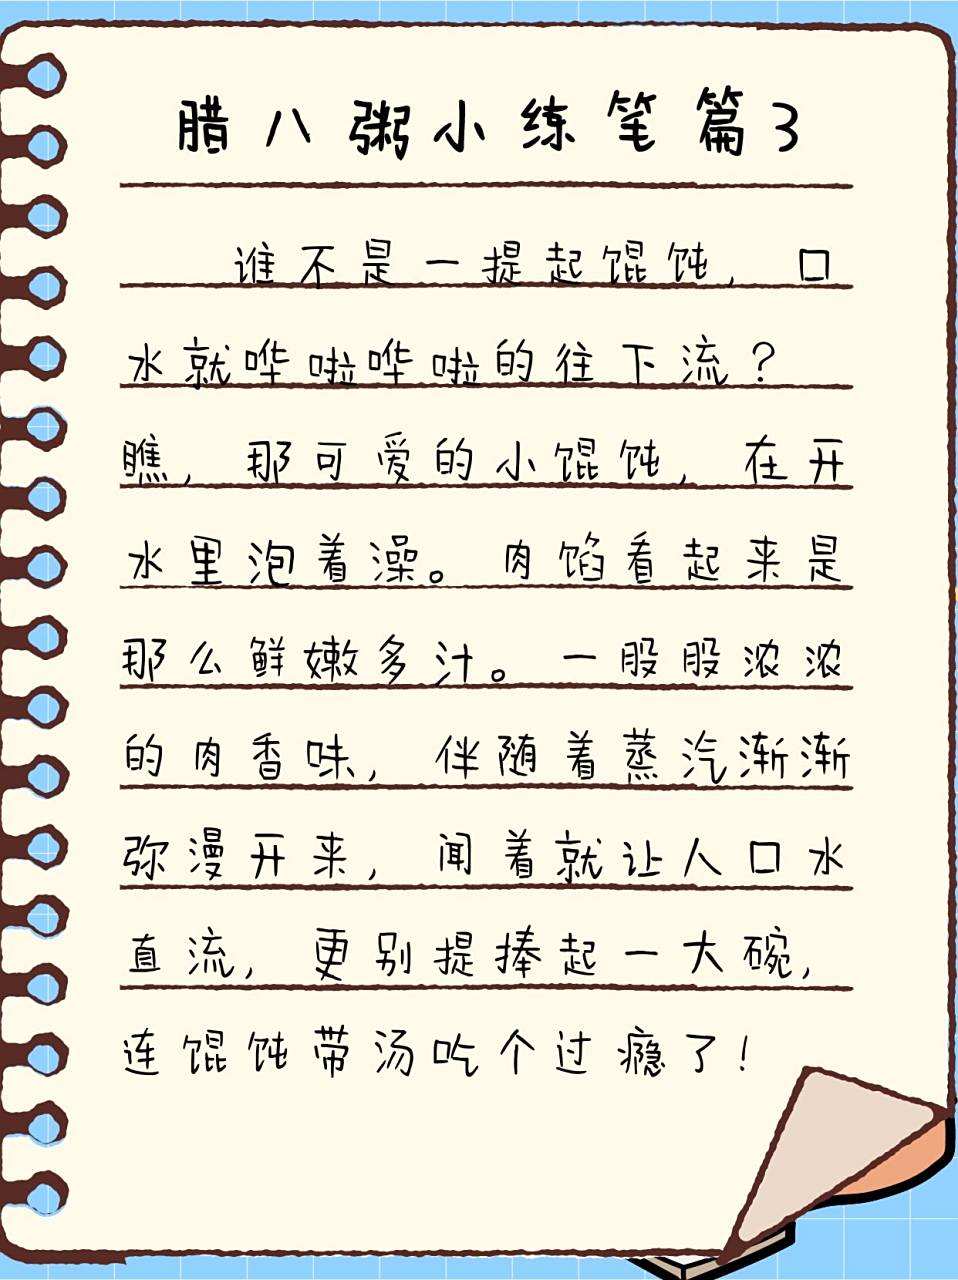 腊八粥小练笔篇3
谁不是一提起馄饨，口
水就哗啦哗啦的往下流？
瞧，那可爱的小馄饨，在开
水里泡着澡。肉馅看起来是
那么鲜嫩多汁。一股股浓浓
的肉香味，伴随着蒸汽渐渐
弥漫开来，闻着就让人口水
直流，更别提捧起一大碗，
连馄饨带汤吃个过瘾了！